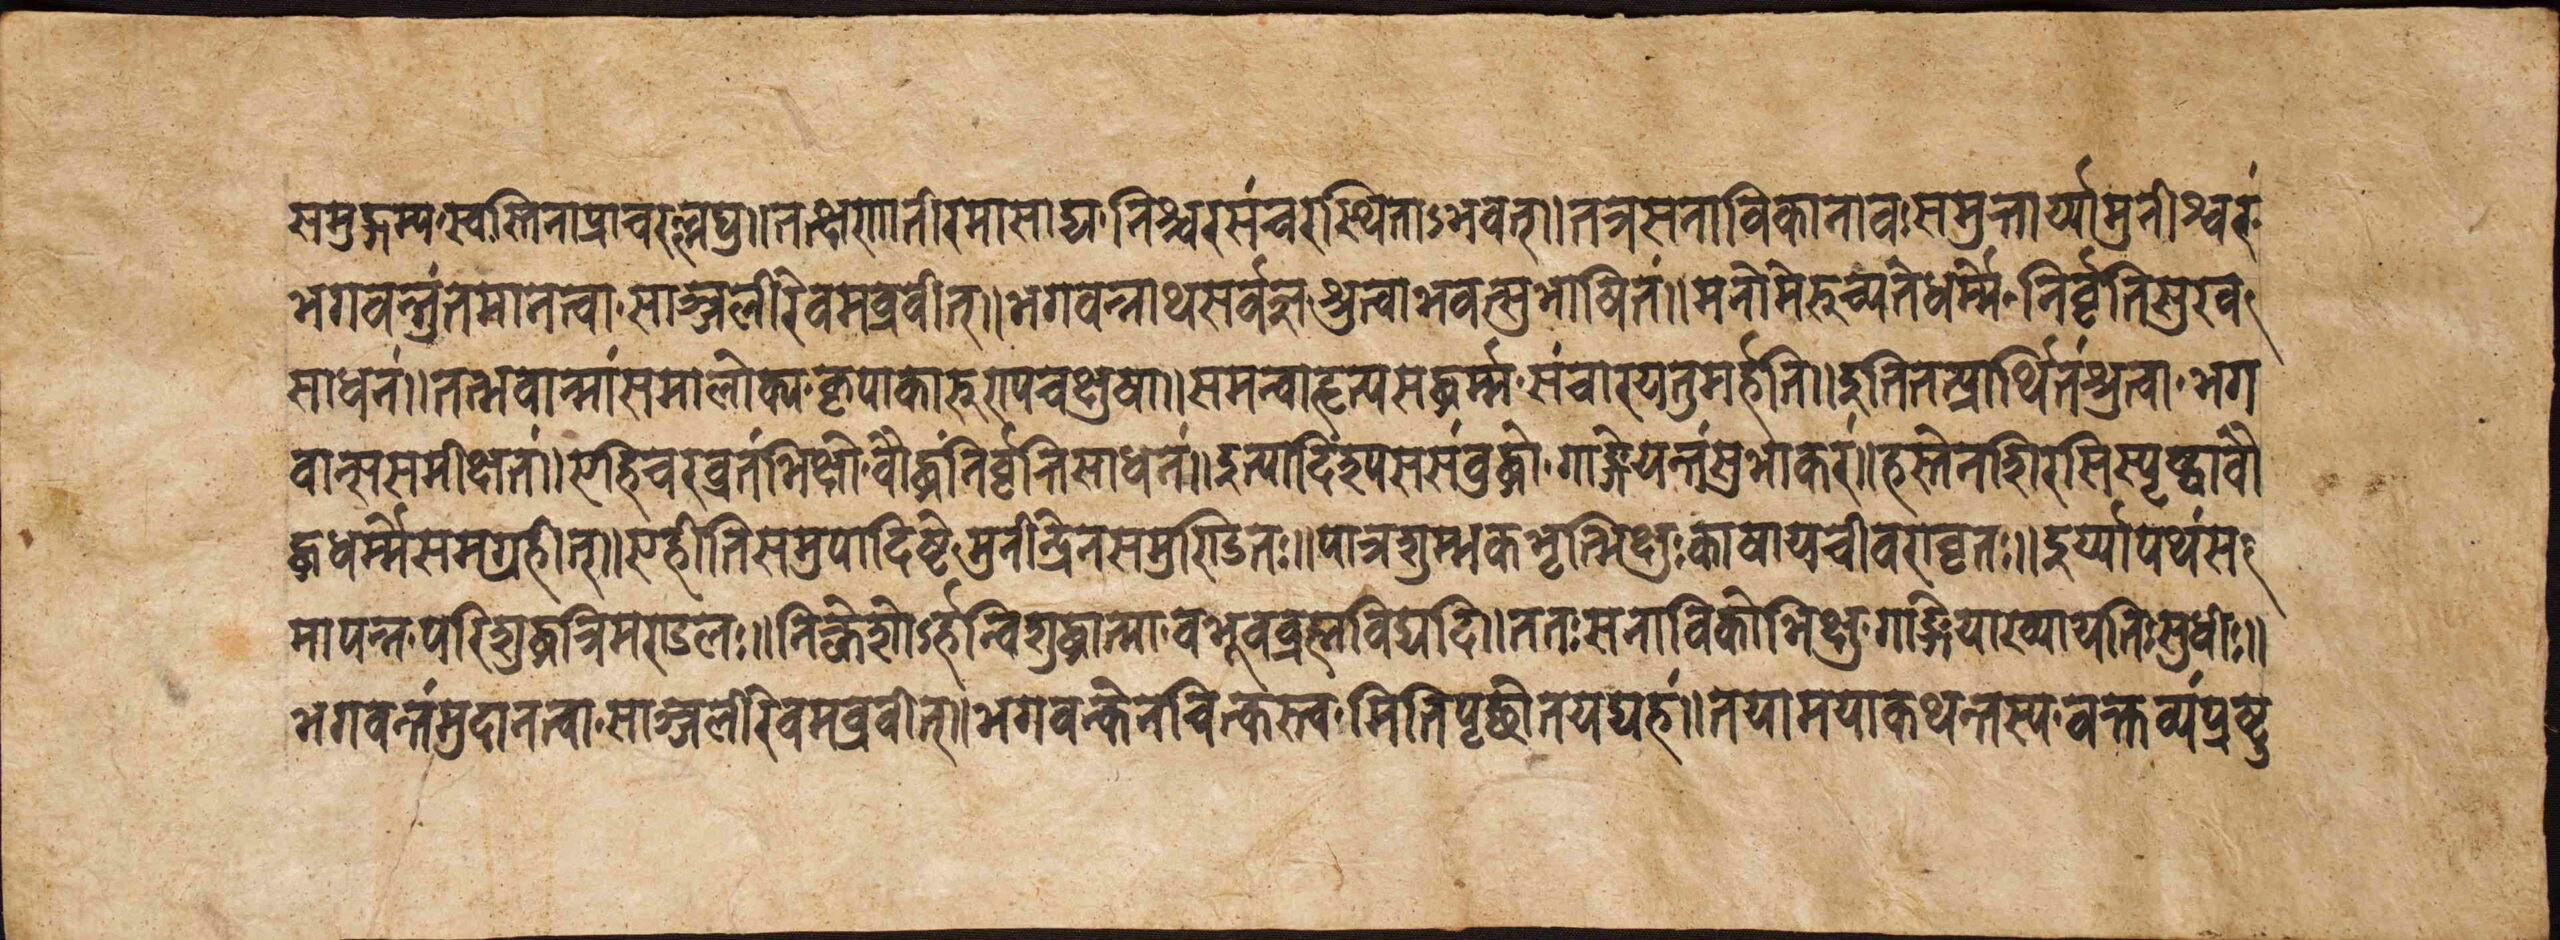 समुद्गम्य स्वस्तिना प्राचरल्लघु॥ तत्क्षणात्तीरमासाद्य निश्चरसंचरस्थिताऽभवत्॥ तत्र स नाविका नावः समुत्तार्य्य मुनीश्वरं
भगवन्तं तमानत्वा साञ्जलीरेवमब्रवीत्॥ भगवन्नाथ सर्वज्ञ श्रुत्वा भवत्सुभाषितं॥ मनो मे रुच्यते धर्म्मे निर्वृतिसुख
साधनं॥ तद्भवान्मां समालोक्य कृपाकारुण्यचक्षुषा॥ समन्वाहृत्य सद्धर्म्म संचारयितुमर्हति॥ इति तत्प्रार्थितं श्रुत्वा भग
वान्स समीक्ष्य तं॥ एहि चर व्रतं भिक्षो बौद्धं निर्वृतिसाधनं॥ इत्यादिश्य स संबुद्धो गाङ्गेयं तं सुभाकरं॥ हस्तेन शिरसि स्पृष्ट्वा बौ
द्धधर्म्मे समग्रहीत्॥ एहीति समुपादिष्टे मुनीन्द्रेन स मुण्डितः॥ पात्रशुम्भकभृद्भिक्षुः काषायचीवरावृतः॥ इर्य्यापथं स
मापन्न परिशुद्धत्रिमण्डलः॥ निःक्लेशोऽर्हन्विशुद्धात्मा बभूव ब्रह्मविद्यदि॥ ततः स नाविको भिक्षु गाङ्गेयाख्यो यतिः सुधीः॥
भगवन्तं मुदानत्वा साञ्जलीरेवमब्रवीत्॥ भगवन्केनचित्कस्त्व मिति पृच्छेत यद्यहं॥ तया मया कथन्तस्य वक्तव्यं प्रष्टु